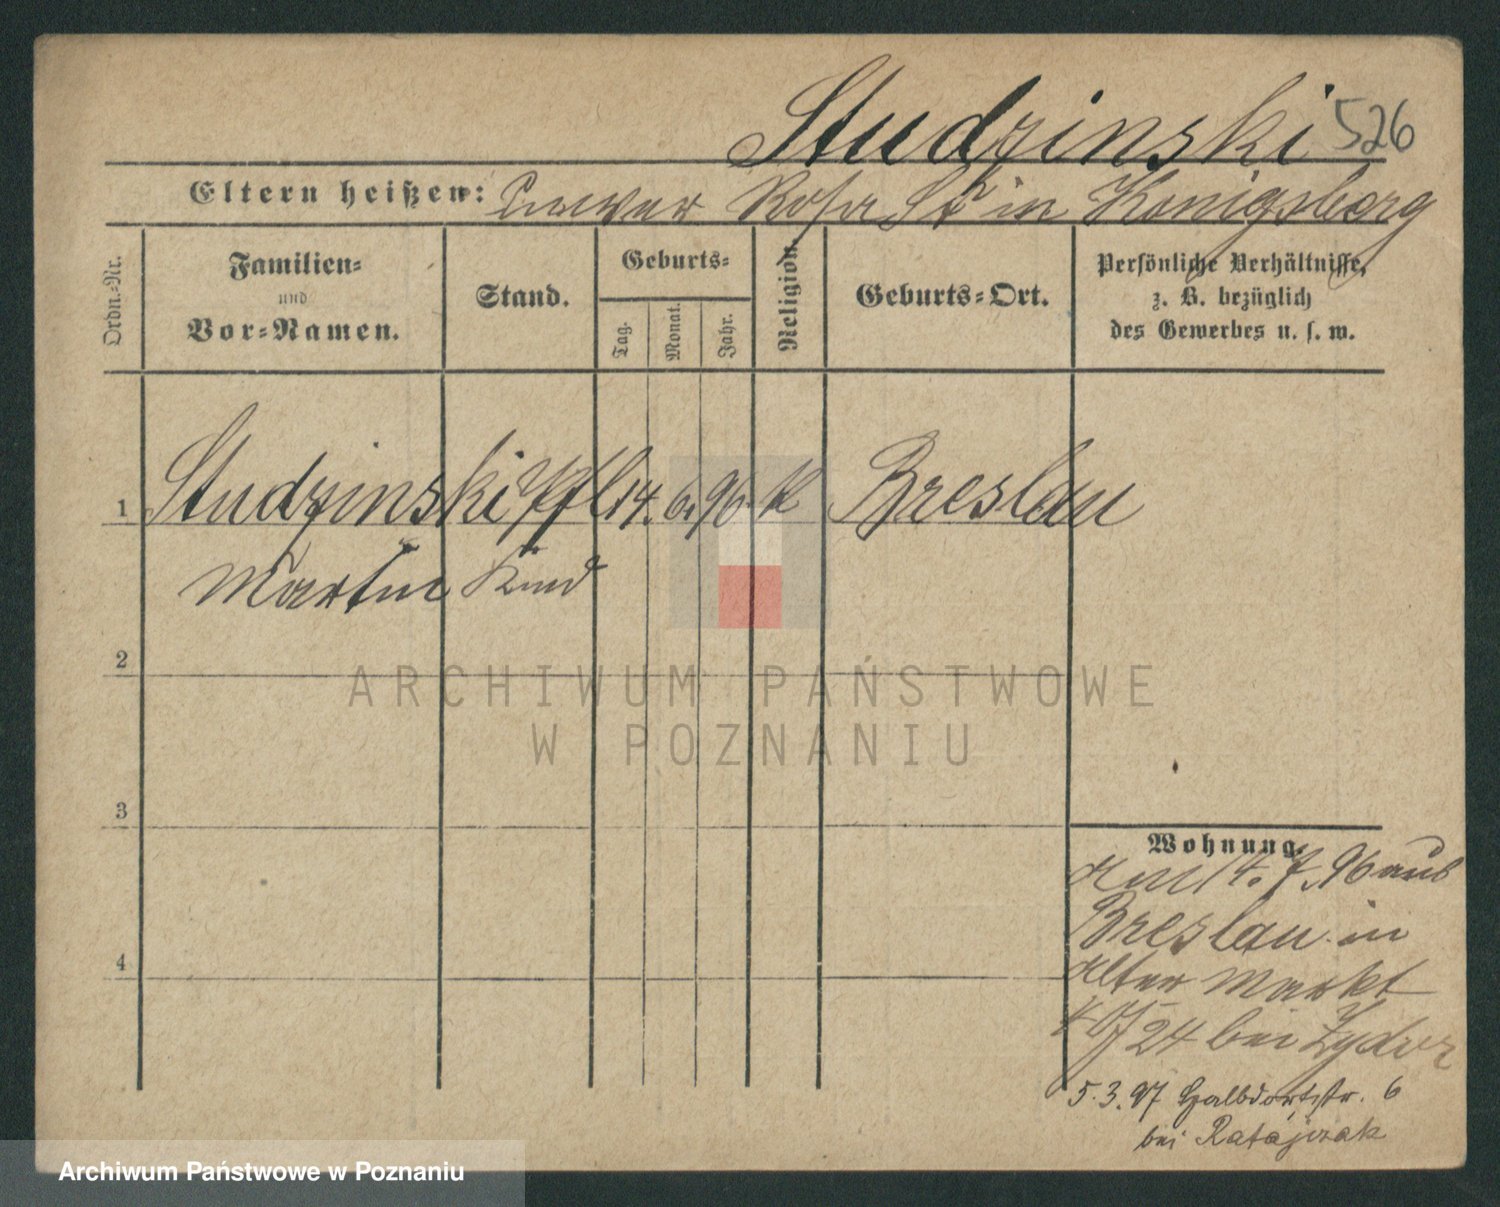 Studzinski 526
Eltern heißen: Rosa St in Königsberg
Ordn.-Nr.
Familien-
und
Vor-Namen.
Stand.
Geburts-
Tag.
Monat.
Jahr.
Religion.
Geburts-Ort.
Persönliche Verhältnisse,
z. B. bezüglich
des Gewerbes u. s. w.
1 Studzinski Pfl 14. 6. 96. K Breslau
Martin Kind
2
ARCHIWUM PAŃSTWOWE
W POZNANIU
3
Wohnung.
am 14. 7. 96 aus
Breslau in
4
Alter Markt
24 bei Zyder
5.3.97 Halbdorfstr. 6
bei Ratajczak
Archiwum Państwowe w Poznaniu